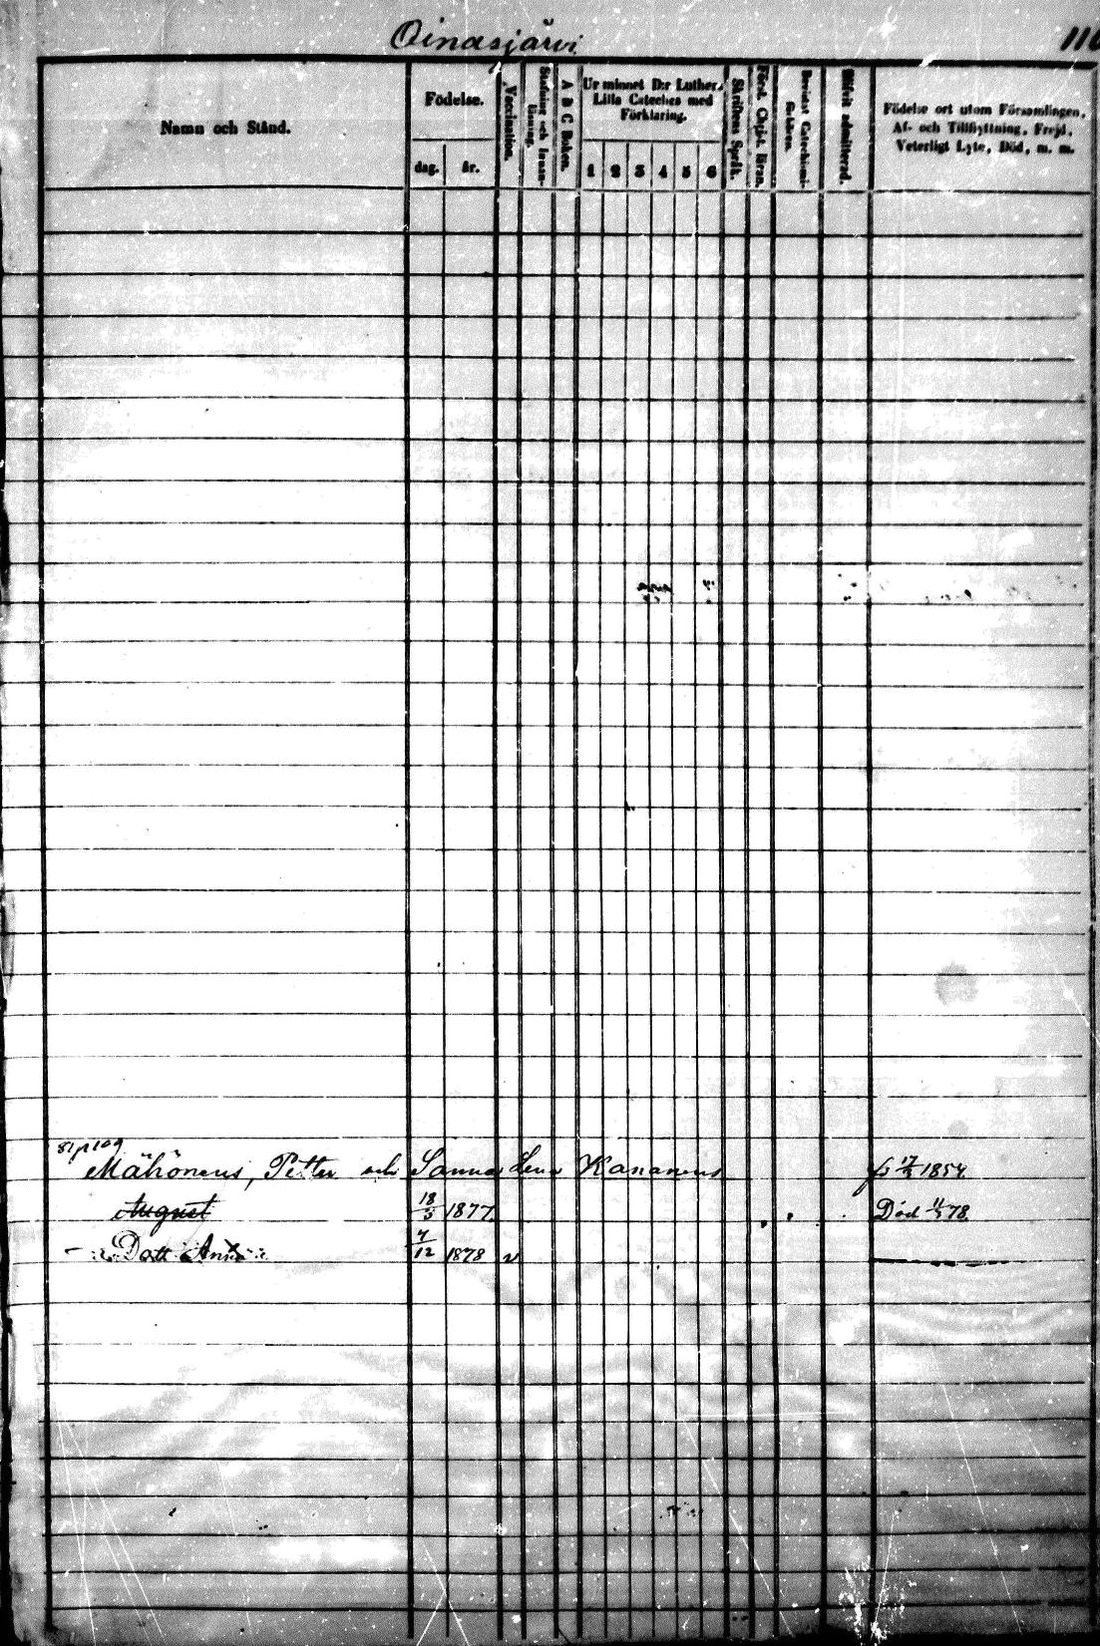 Oinasjärvi
Namn och Stånd.
Födelse.
dag. år.
Vaccination.
A B C Boken.
Ur minnet D:r Luther.
Lilla Cateches med
Förklaring.
1 2 3 4 5 6
Skriftens Språk.
Först. Christ. läran.
admitterad.
Födelse ort utom Församlingen,
Af- och Tillflyttning, Frejd,
Veterligt Lyte, Död, m. m.
81 p 109
Mähönens, Petter och Sanna Lena Kananens 1854
August 18/3 1877 Död 78
Dott Anna 7/12 1878 v